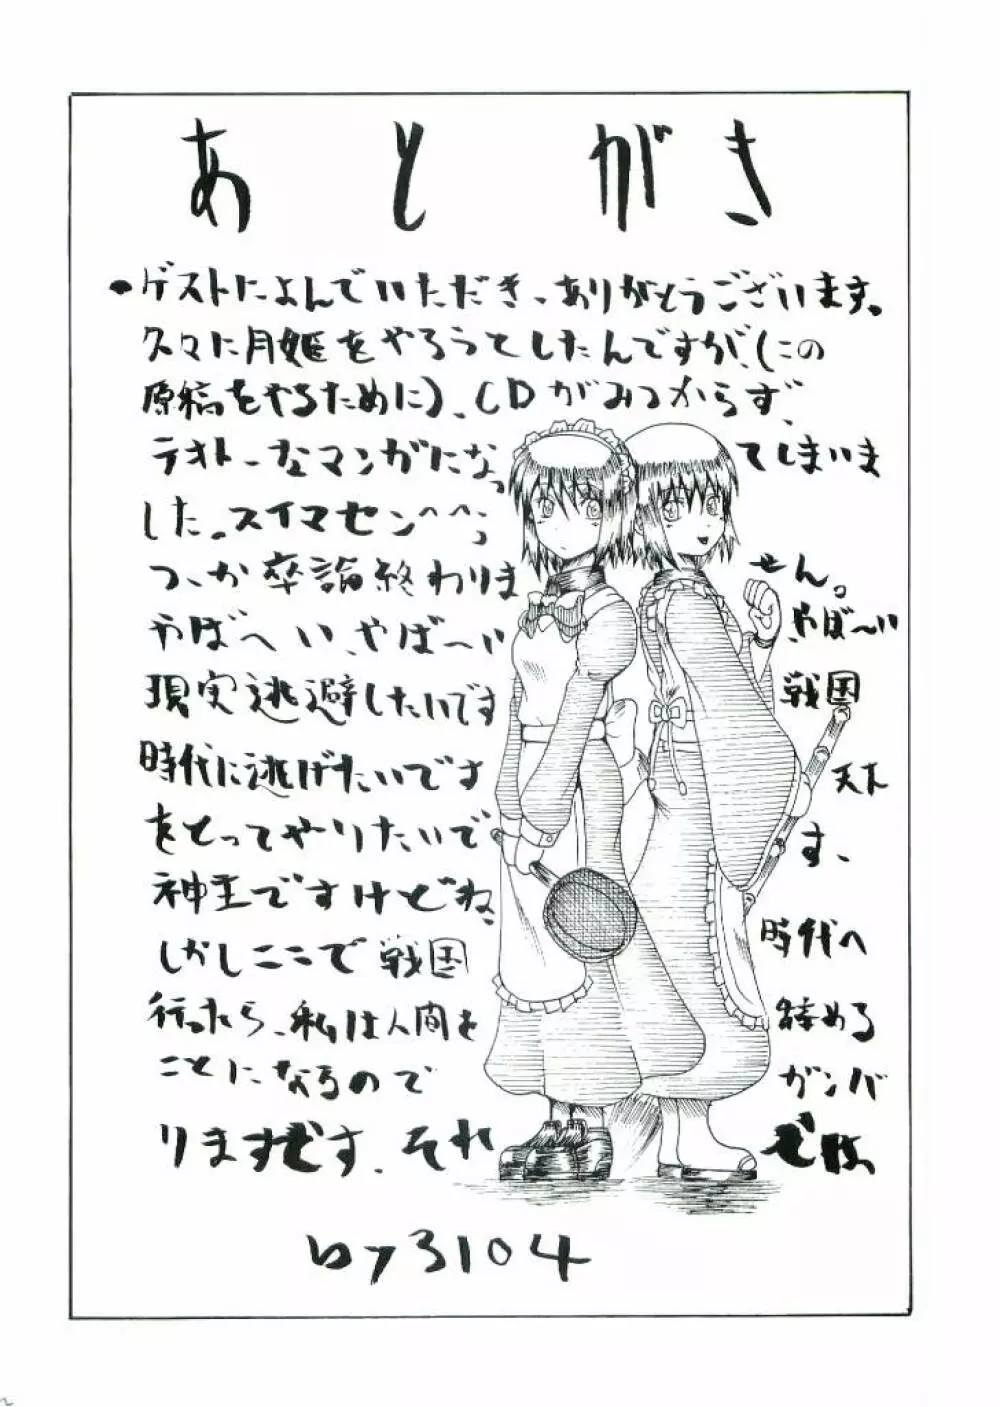 あとがき
・ゲストによんでいただき、ありがとうございます。
久々に月姫をやろうとしたんですが、(この
原稿をやるために)、CDがみつからず、
テキトーなマンガになってしまいま
した。スイマセン^^;
つーか卒論終わりません。
やばへい、やば〜い、やば〜い
現実逃避したいです 戦国
時代に逃げたいです 天下
をとってやりたいです、
神主ですけどね、
しかしここで戦国時代へ
行ったら、私は人間を辞める
ことになるのでガンバ
りますです、それでは。
by 3104